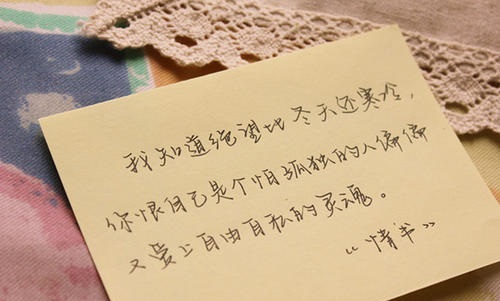 我知道绝望比冬天还寒冷，
你恨自己是个怕孤独的人偏偏
又爱上自由自私的灵魂。
《情书》